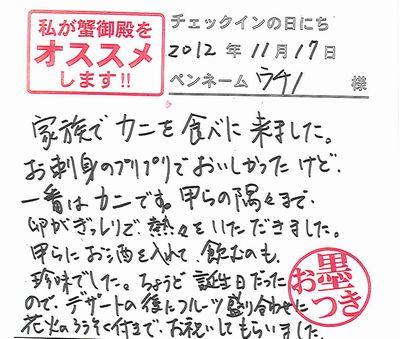 私が蟹御殿を
オススメ
します!!
チェックインの日にち
2012 年 11 月 17 日
ペンネーム ウチノ 様
家族でカニを食べに来ました。
お刺身のプリプリでおいしかったけど、
一番はカニです。甲らの隅々まで、
卵がぎっしりで熱々をいただきました。
甲らにお酒を入れて、飲むのも、
珍味でした。ちょうど誕生日だった
ので、デザートの後にフルーツ盛り合わせに
花火のろうそく付きで、お祝いしてもらいました。
お墨つき